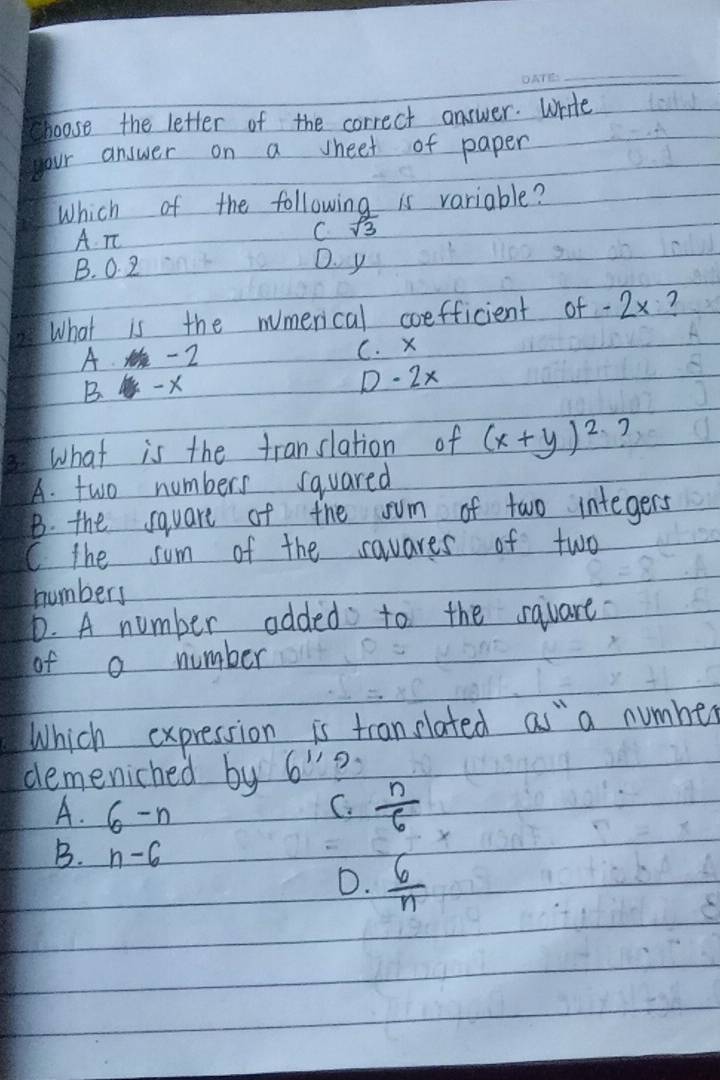 DATE:
Choose the letter of the correct answer. Write
your answer on a sheet of paper
Which of the following is variable?
A. π C. √3
B. 0.2 D. y
2. What is the numerical coefficient of -2x?
A. -2 C. x
B. -x D -2x
3. What is the translation of (x+y)²?
A. two numbers squared
B. the square of the sum of two integers
C. the sum of the squares of two
numbers
D. A number added to the square
of a number
Which expression is translated as "a number
demeniched by 6"?
A. 6-n C. n/6
B. n-6
D. 6/n